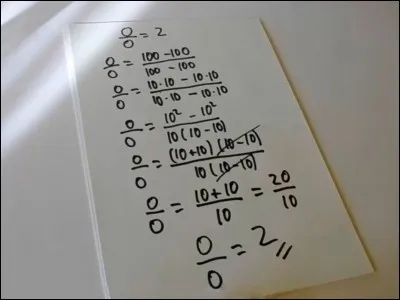 0/0 = 2
0/0 = (100 - 100)/(100 - 100)
0/0 = (10·10 - 10·10)/(10·10 - 10·10)
0/0 = (10² - 10²)/(10(10 - 10))
0/0 = ((10+10)(10-10))/(10(10-10))
0/0 = (10+10)/10 = 20/10
0/0 = 2